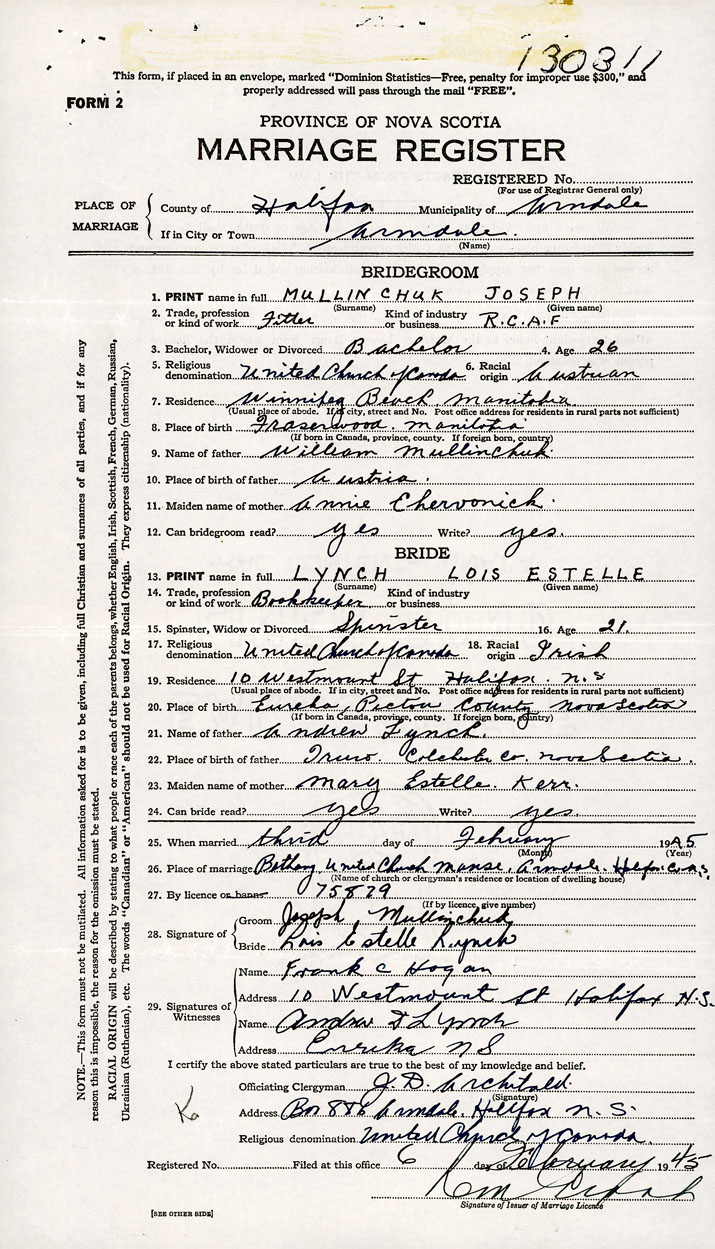 130311
This form, if placed in an envelope, marked "Dominion Statistics—Free, penalty for improper use $300," and
properly addressed will pass through the mail "FREE".
FORM 2
PROVINCE OF NOVA SCOTIA
MARRIAGE REGISTER
REGISTERED No.
(For use of Registrar General only)
PLACE OF MARRIAGE
County of Halifax Municipality of Armdale
If in City or Town Armdale.
(Name)
BRIDEGROOM
1. PRINT name in full MULLINCHUK JOSEPH
(Surname) (Given name)
2. Trade, profession or kind of work Fitter Kind of industry or business R.C.A.F
3. Bachelor, Widower or Divorced Bachelor 4. Age 26
5. Religious denomination United Church of Canada 6. Racial origin Austrian
7. Residence Winnipeg Beach Manitoba.
(Usual place of abode. If in city, street and No. Post office address for residents in rural parts not sufficient)
8. Place of birth Fraserwood. Manitoba
(If born in Canada, province, county. If foreign born, country)
9. Name of father William Mullinchuk.
10. Place of birth of father Austria.
11. Maiden name of mother Annie Chervonick.
12. Can bridegroom read? yes Write? yes.
BRIDE
13. PRINT name in full LYNCH LOIS ESTELLE
(Surname) (Given name)
14. Trade, profession or kind of work Bookkeeper Kind of industry or business
15. Spinster, Widow or Divorced Spinster 16. Age 21.
17. Religious denomination United Church of Canada 18. Racial origin Irish
19. Residence 10 Westmount St Halifax. N.S
(Usual place of abode. If in city, street and No. Post office address for residents in rural parts not sufficient)
20. Place of birth Eureka, Pictou County Nova Scotia
(If born in Canada, province, county. If foreign born, country)
21. Name of father Andrew Lynch.
22. Place of birth of father Truro. Colchester Co. Nova Scotia.
23. Maiden name of mother Mary Estelle. Kerr.
24. Can bride read? yes Write? yes.
25. When married third day of February 1945
(Month) (Year)
26. Place of marriage Bethany United Church Manse, Armdale. Hfx. Co. N.S.
(Name of church or clergyman's residence or location of dwelling house)
27. By licence or banns 75829
(If by licence, give number)
28. Signature of
Groom Joseph Mullinchuk
Bride Lois Estelle Lynch
29. Signatures of Witnesses
Name Frank C Hogan
Address 10 Westmount St Halifax N.S.
Name Andrew D Lynch
Address Eureka NS
I certify the above stated particulars are true to the best of my knowledge and belief.
Officiating Clergyman J. D. Archibald.
(Signature)
Address Box 886 Armdale. Halifax N. S.
Religious denomination United Church of Canada.
Registered No. Filed at this office 6 day of February 1945
Signature of Issuer of Marriage Licence
[SEE OTHER SIDE]
NOTE.—This form must not be mutilated. All information asked for is to be given, including full Christian and surnames of all parties, and if for any
reason this is impossible, the reason for the omission must be stated.
RACIAL ORIGIN will be described by stating to what people or race each of the parents belongs, whether English, Irish, Scottish, French, German, Russian,
Ukrainian (Ruthenian), etc. The words "Canadian" or "American" should not be used for Racial Origin. They express citizenship (nationality).